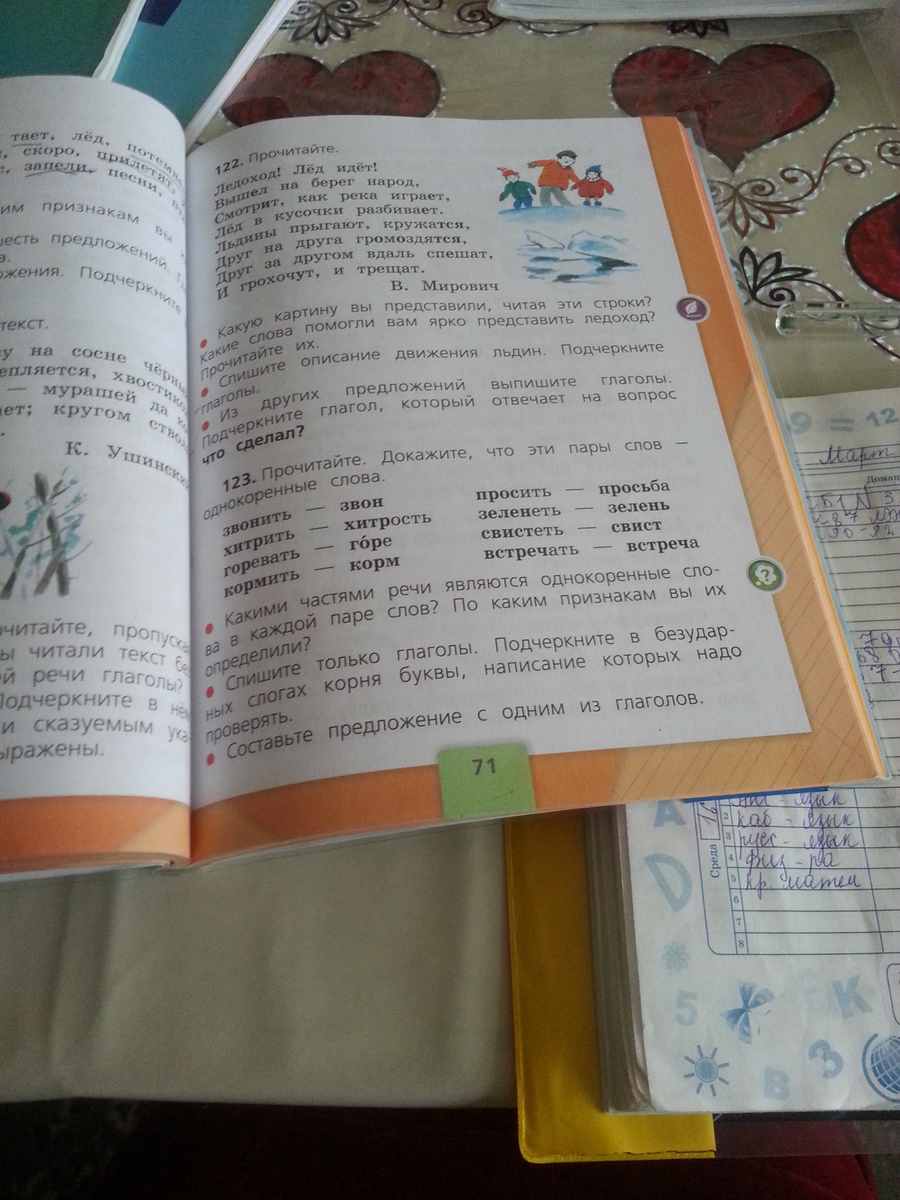 тает, лёд,
скоро, прилетят,
запели, песни,
ким признакам вы
шесть предложений.
ожения. Подчеркните
текст.
су на сосне
епляется,
— мурашей да
ает; кругом
К. Ушинский
очитайте,
ы читали текст
ей речи глаголы?
Подчеркните в
и сказуемым
ыражены.
122. Прочитайте.
Ледоход! Лёд идёт!
Вышел на берег народ,
Смотрит, как река играет,
Лёд в кусочки разбивает.
Льдины прыгают, кружатся,
Друг на друга громоздятся,
Друг за другом вдаль спешат,
И грохочут, и трещат.
В. Мирович
• Какую картину вы представили, читая эти строки?
Какие слова помогли вам ярко представить ледоход?
Прочитайте их.
• Спишите описание движения льдин. Подчеркните
глаголы.
• Из других предложений выпишите глаголы.
Подчеркните глагол, который отвечает на вопрос
что сделал?
123. Прочитайте. Докажите, что эти пары слов —
однокоренные слова.
звонить — звон просить — просьба
хитрить — хитрость зеленеть — зелень
горевать — го́ре свистеть — свист
кормить — корм встречать — встреча
• Какими частями речи являются однокоренные сло-
ва в каждой паре слов? По каким признакам вы их
определили?
• Спишите только глаголы. Подчеркните в безудар-
ных слогах корня буквы, написание которых надо
проверять.
• Составьте предложение с одним из глаголов.
71
?
9 = 12
Март
Среда
2 каб - язык
3 русс - язык
4 физ - ра
5 кр. матем
6
7
8
А
D
5
К
З
В